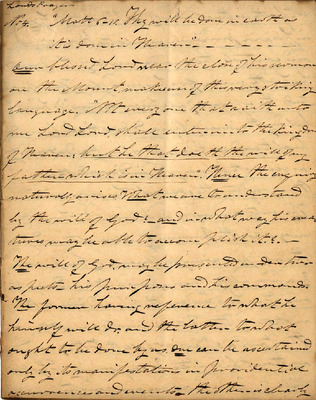 Lords Prayer
No 4. "Matt 6-10. Thy will be done in earth as
it is done in Heaven" —
Our blessed Lord near the close of his sermon
on the Mount makes use of the very striking
language, "Not every one that saith unto
me Lord Lord shall enter into the kingdom
of Heaven, but he that doeth the will of my
father which is in Heaven. Hence the enquiry
naturally arises What are we to understand
by the will of God? and in what way his
creatures may be able to accomplish it? —
The will of God, may be
as both his purposes and his commands
The former having reference to what he
himself will do, and the latter to what
ought to be done by us. One can be ascertained
only by its manifestation in providential
occurrences and events the other is clearly